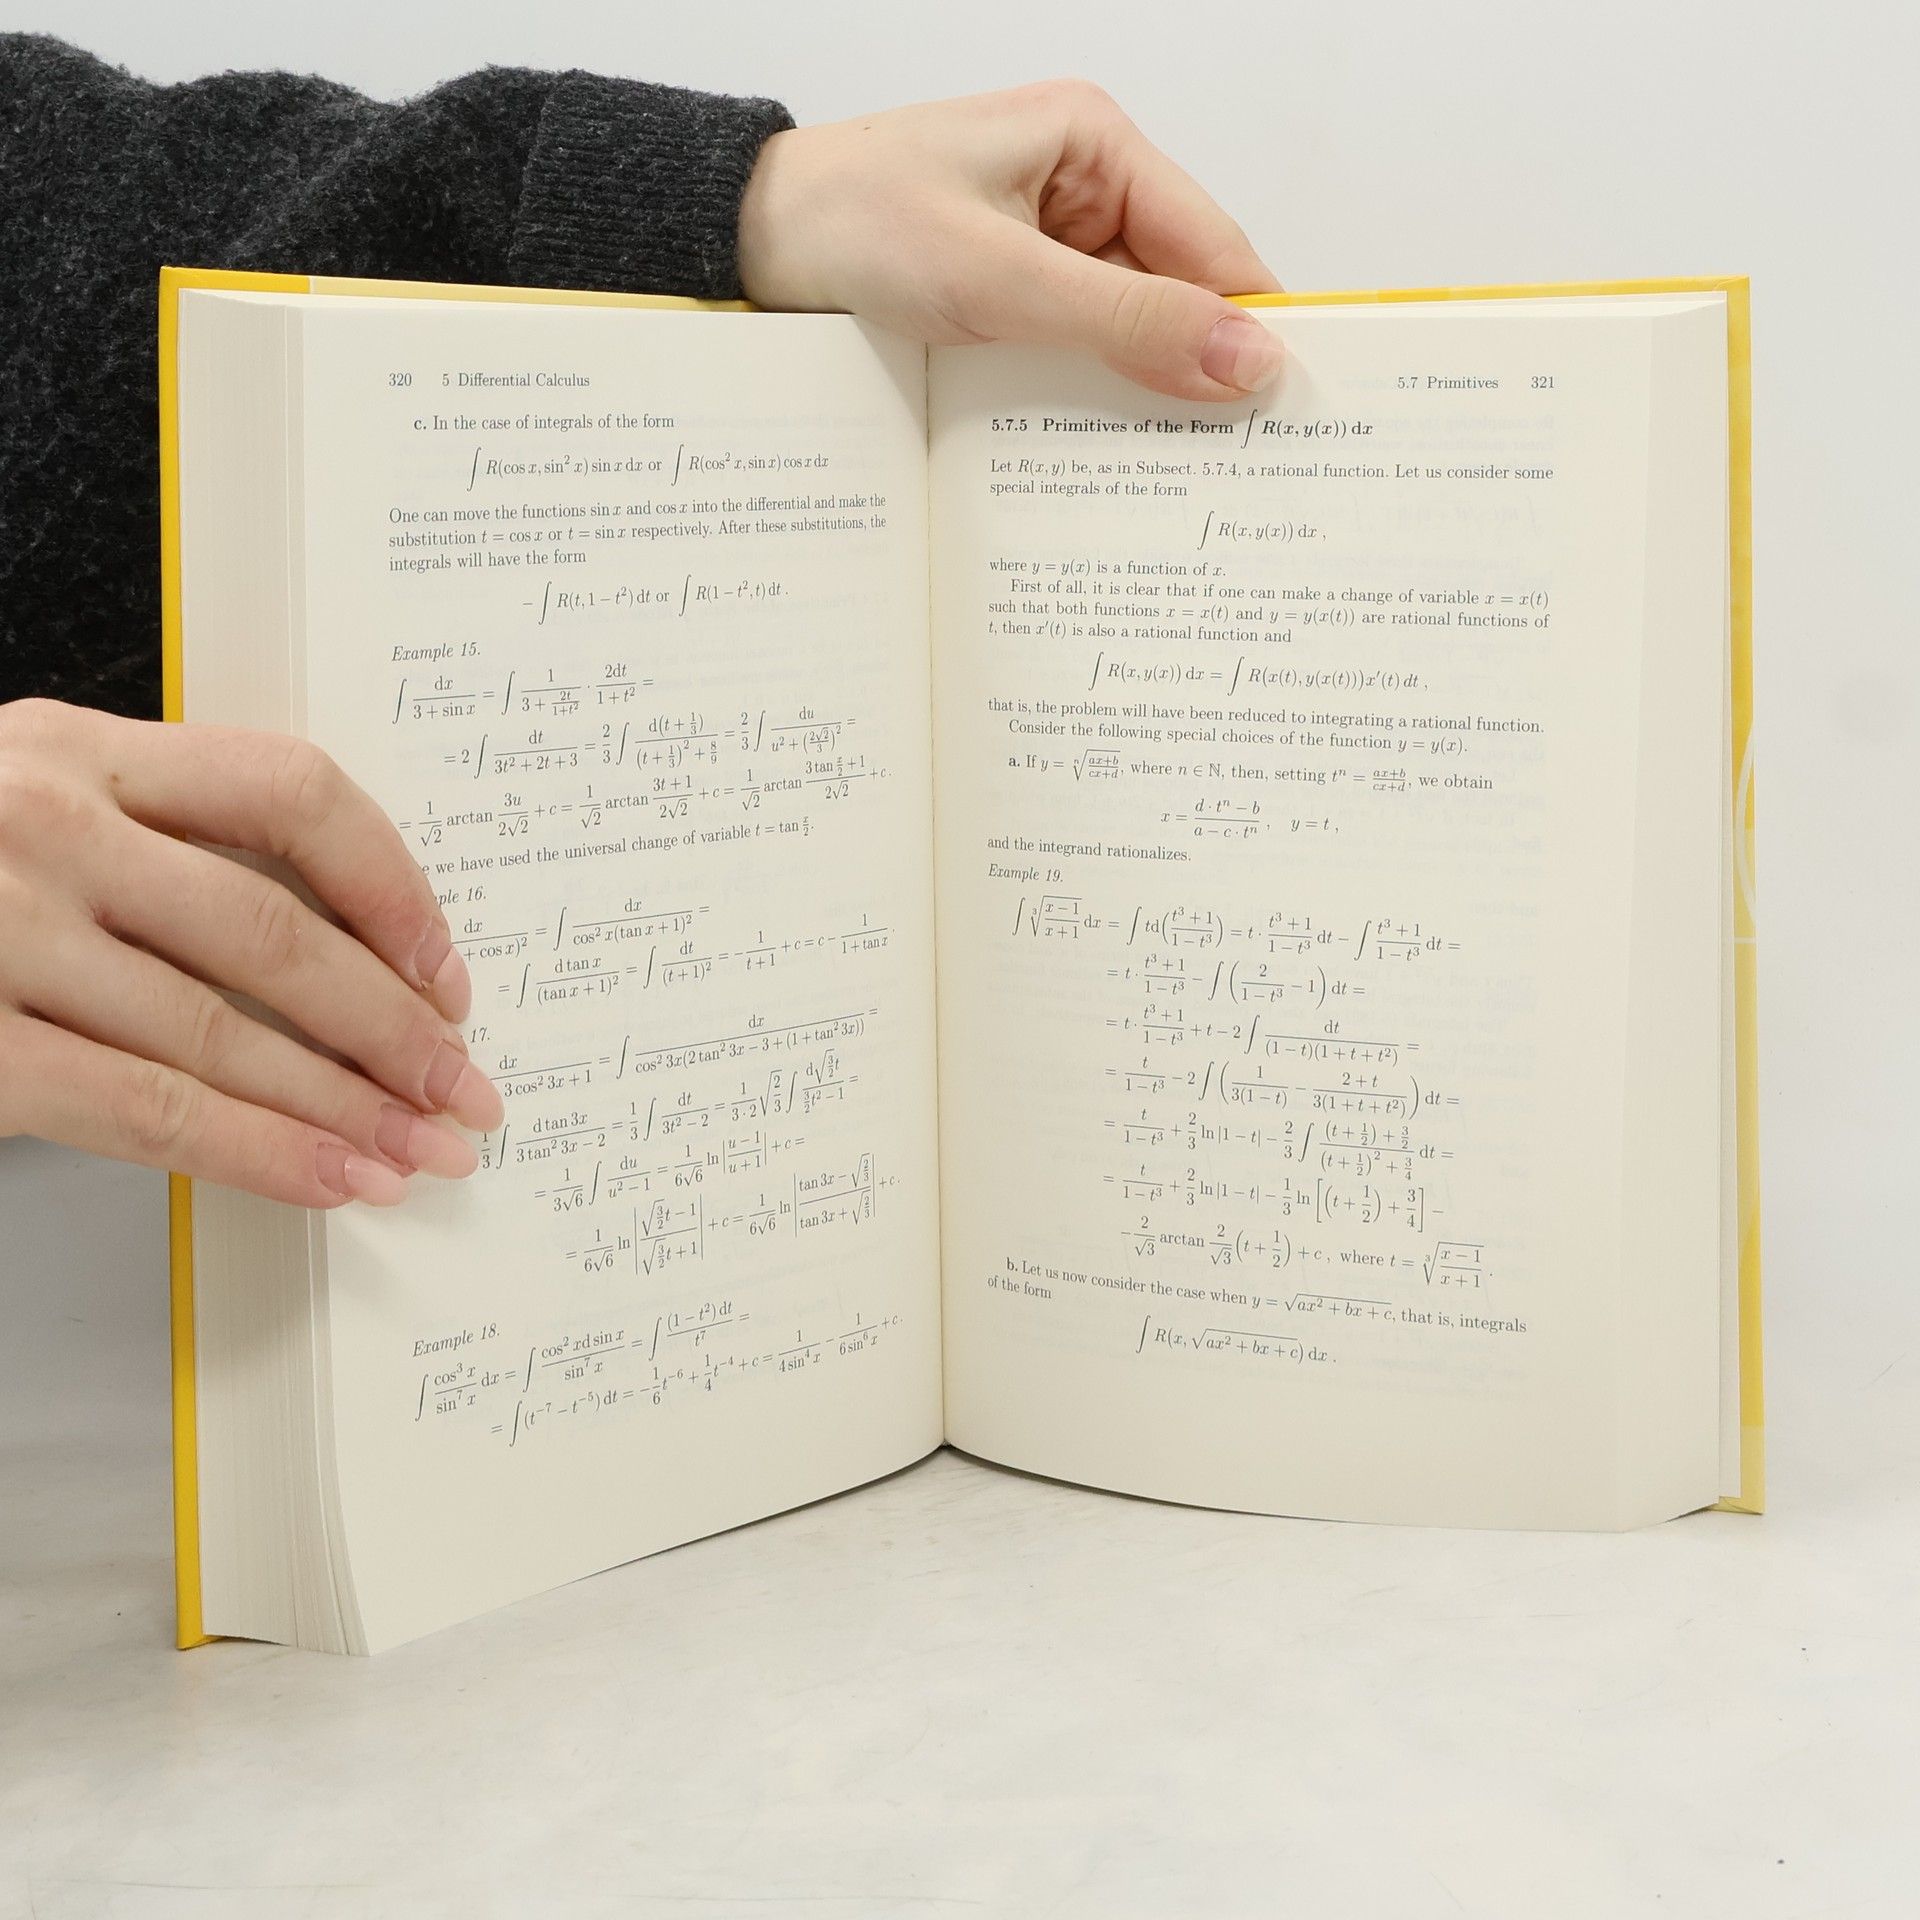 320 5 Differential Calculus
c. In the case of integrals of the form
∫ R(cos x, sin² x) sin x dx or ∫ R(cos² x, sin x) cos x dx
One can move the functions sin x and cos x into the differential and make the
substitution t = cos x or t = sin x respectively. After these substitutions, the
integrals will have the form
− ∫ R(t, 1 − t²) dt or ∫ R(1 − t², t) dt .
Example 15.
∫ dx/(3 + sin x) = ∫ 1/(3 + 2t/(1+t²)) · 2dt/(1 + t²) =
= 2 ∫ dt/(3t² + 2t + 3) = 2/3 ∫ d(t + 1/3)/((t + 1/3)² + 8/9) = 2/3 ∫ du/(u² + (2√2/3)²) =
= 1/√2 arctan 3u/(2√2) + c = 1/√2 arctan (3t + 1)/(2√2) + c = 1/√2 arctan (3 tan x/2 + 1)/(2√2) + c.
we have used the universal change of variable t = tan x/2.
16.
dx/( + cos x)² = ∫ dx/(cos² x(tan x + 1)²) =
= ∫ d tan x/(tan x + 1)² = ∫ dt/(t + 1)² = − 1/(t + 1) + c = c − 1/(1 + tan x) .
17.
dx/( 3 cos² 3x + 1) = ∫ dx/(cos² 3x(2 tan² 3x − 3 + (1 + tan² 3x))) =
1/3 ∫ d tan 3x/(3 tan² 3x − 2) = 1/3 ∫ dt/(3t² − 2) = 1/(3 · 2) √(2/3) ∫ d√(3/2)t/(3/2 t² − 1) =
= 1/(3√6) ∫ du/(u² − 1) = 1/(6√6) ln |(u − 1)/(u + 1)| + c =
= 1/(6√6) ln |(√(3/2)t − 1)/(√(3/2)t + 1)| + c = 1/(6√6) ln |(tan 3x − √(2/3))/(tan 3x + √(2/3))| + c .
Example 18.
∫ cos³ x/sin⁷ x dx = ∫ cos² x d sin x/sin⁷ x = ∫ (1 − t²) dt/t⁷ =
= ∫ (t⁻⁷ − t⁻⁵) dt = − 1/6 t⁻⁶ + 1/4 t⁻⁴ + c = 1/(4 sin⁴ x) − 1/(6 sin⁶ x) + c .
5.7 Primitives 321
5.7.5 Primitives of the Form ∫ R(x, y(x)) dx
Let R(x, y) be, as in Subsect. 5.7.4, a rational function. Let us consider some
special integrals of the form
∫ R(x, y(x)) dx ,
where y = y(x) is a function of x.
First of all, it is clear that if one can make a change of variable x = x(t)
such that both functions x = x(t) and y = y(x(t)) are rational functions of
t, then x′(t) is also a rational function and
∫ R(x, y(x)) dx = ∫ R(x(t), y(x(t)))x′(t) dt ,
that is, the problem will have been reduced to integrating a rational function.
Consider the following special choices of the function y = y(x).
a. If y = ⁿ√((ax+b)/(cx+d)), where n ∈ ℕ, then, setting tⁿ = (ax+b)/(cx+d), we obtain
x = (d · tⁿ − b)/(a − c · tⁿ) , y = t ,
and the integrand rationalizes.
Example 19.
∫ ³√((x − 1)/(x + 1)) dx = ∫ td((t³ + 1)/(1 − t³)) = t · (t³ + 1)/(1 − t³) dt − ∫ (t³ + 1)/(1 − t³) dt =
= t · (t³ + 1)/(1 − t³) − ∫ (2/(1 − t³) − 1) dt =
= t · (t³ + 1)/(1 − t³) + t − 2 ∫ dt/((1 − t)(1 + t + t²)) =
= t/(1 − t³) − 2 ∫ (1/(3(1 − t)) − (2 + t)/(3(1 + t + t²))) dt =
= t/(1 − t³) + 2/3 ln |1 − t| − 2/3 ∫ ((t + 1/2) + 3/2)/((t + 1/2)² + 3/4) dt =
= t/(1 − t³) + 2/3 ln |1 − t| − 1/3 ln [(t + 1/2) + 3/4] −
− 2/√3 arctan 2/√3 (t + 1/2) + c , where t = ³√((x − 1)/(x + 1)) .
b. Let us now consider the case when y = √(ax² + bx + c), that is, integrals
of the form
∫ R(x, √(ax² + bx + c)) dx .